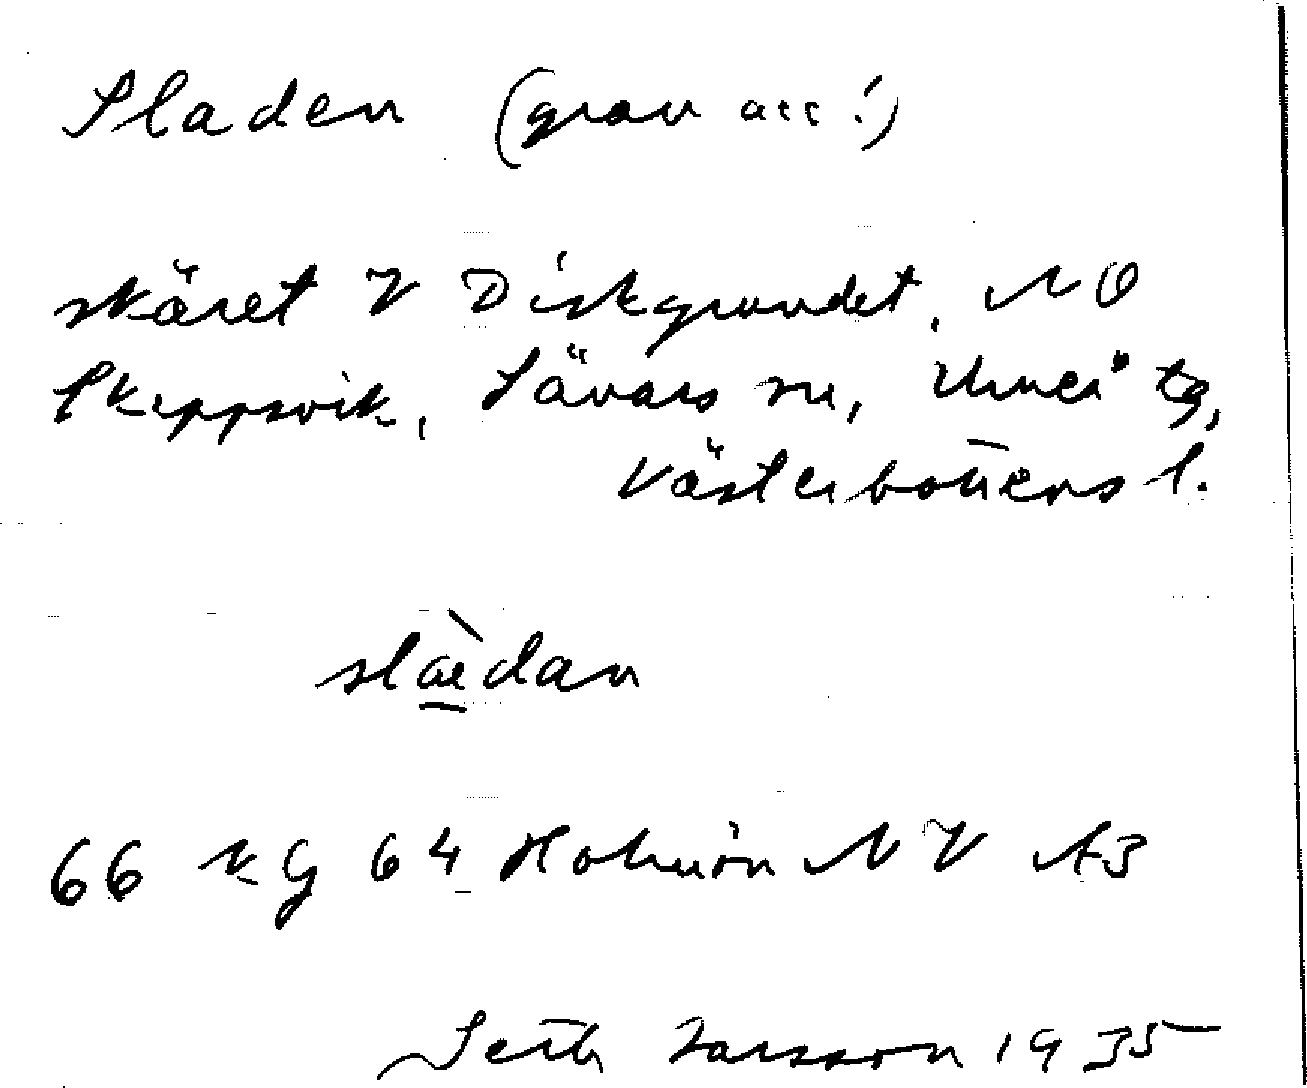 Sladen (grav acc!)
skäret V Diskgrundet, NO
Skeppsvik, Sävars sn, Umeå tg,
Västerbottens l.
slæ̀dan
66 kg 64 Holmön NV A3
Seth Larsson 1935